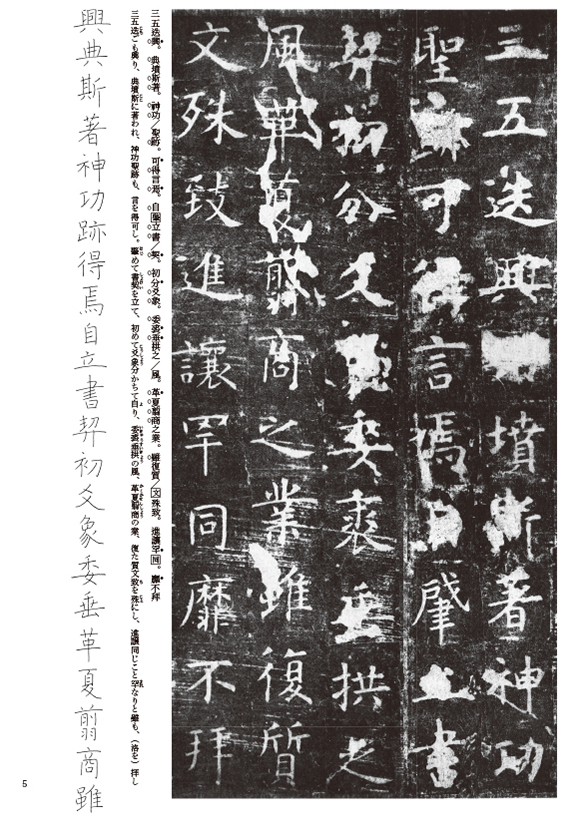 三五迭興墳斯著神功
聖跡可得言焉自肇立書
契初分爻象委裘垂拱之
風革夏翦商之業雖復質
文殊致進讓罕同靡不拝
三五迭興。典墳斯著。神功／聖跡。可得言焉。自肇立書／契。初分爻象。委裘垂拱之／風。革夏翦商之業。雖復質／文殊致。進讓罕同。靡不拝
三五迭ごも興り、典墳斯に著われ、神功聖跡も、言を得可し。肇めて書契を立て、初めて爻象分かちて自り、委裘垂拱の風、革夏翦商の業、復た質文致を殊にし、進讓同じこと罕なりと雖も、（洛を）拝し
興典斯著神功跡得焉自立書契初爻象委垂革夏翦商雖
5